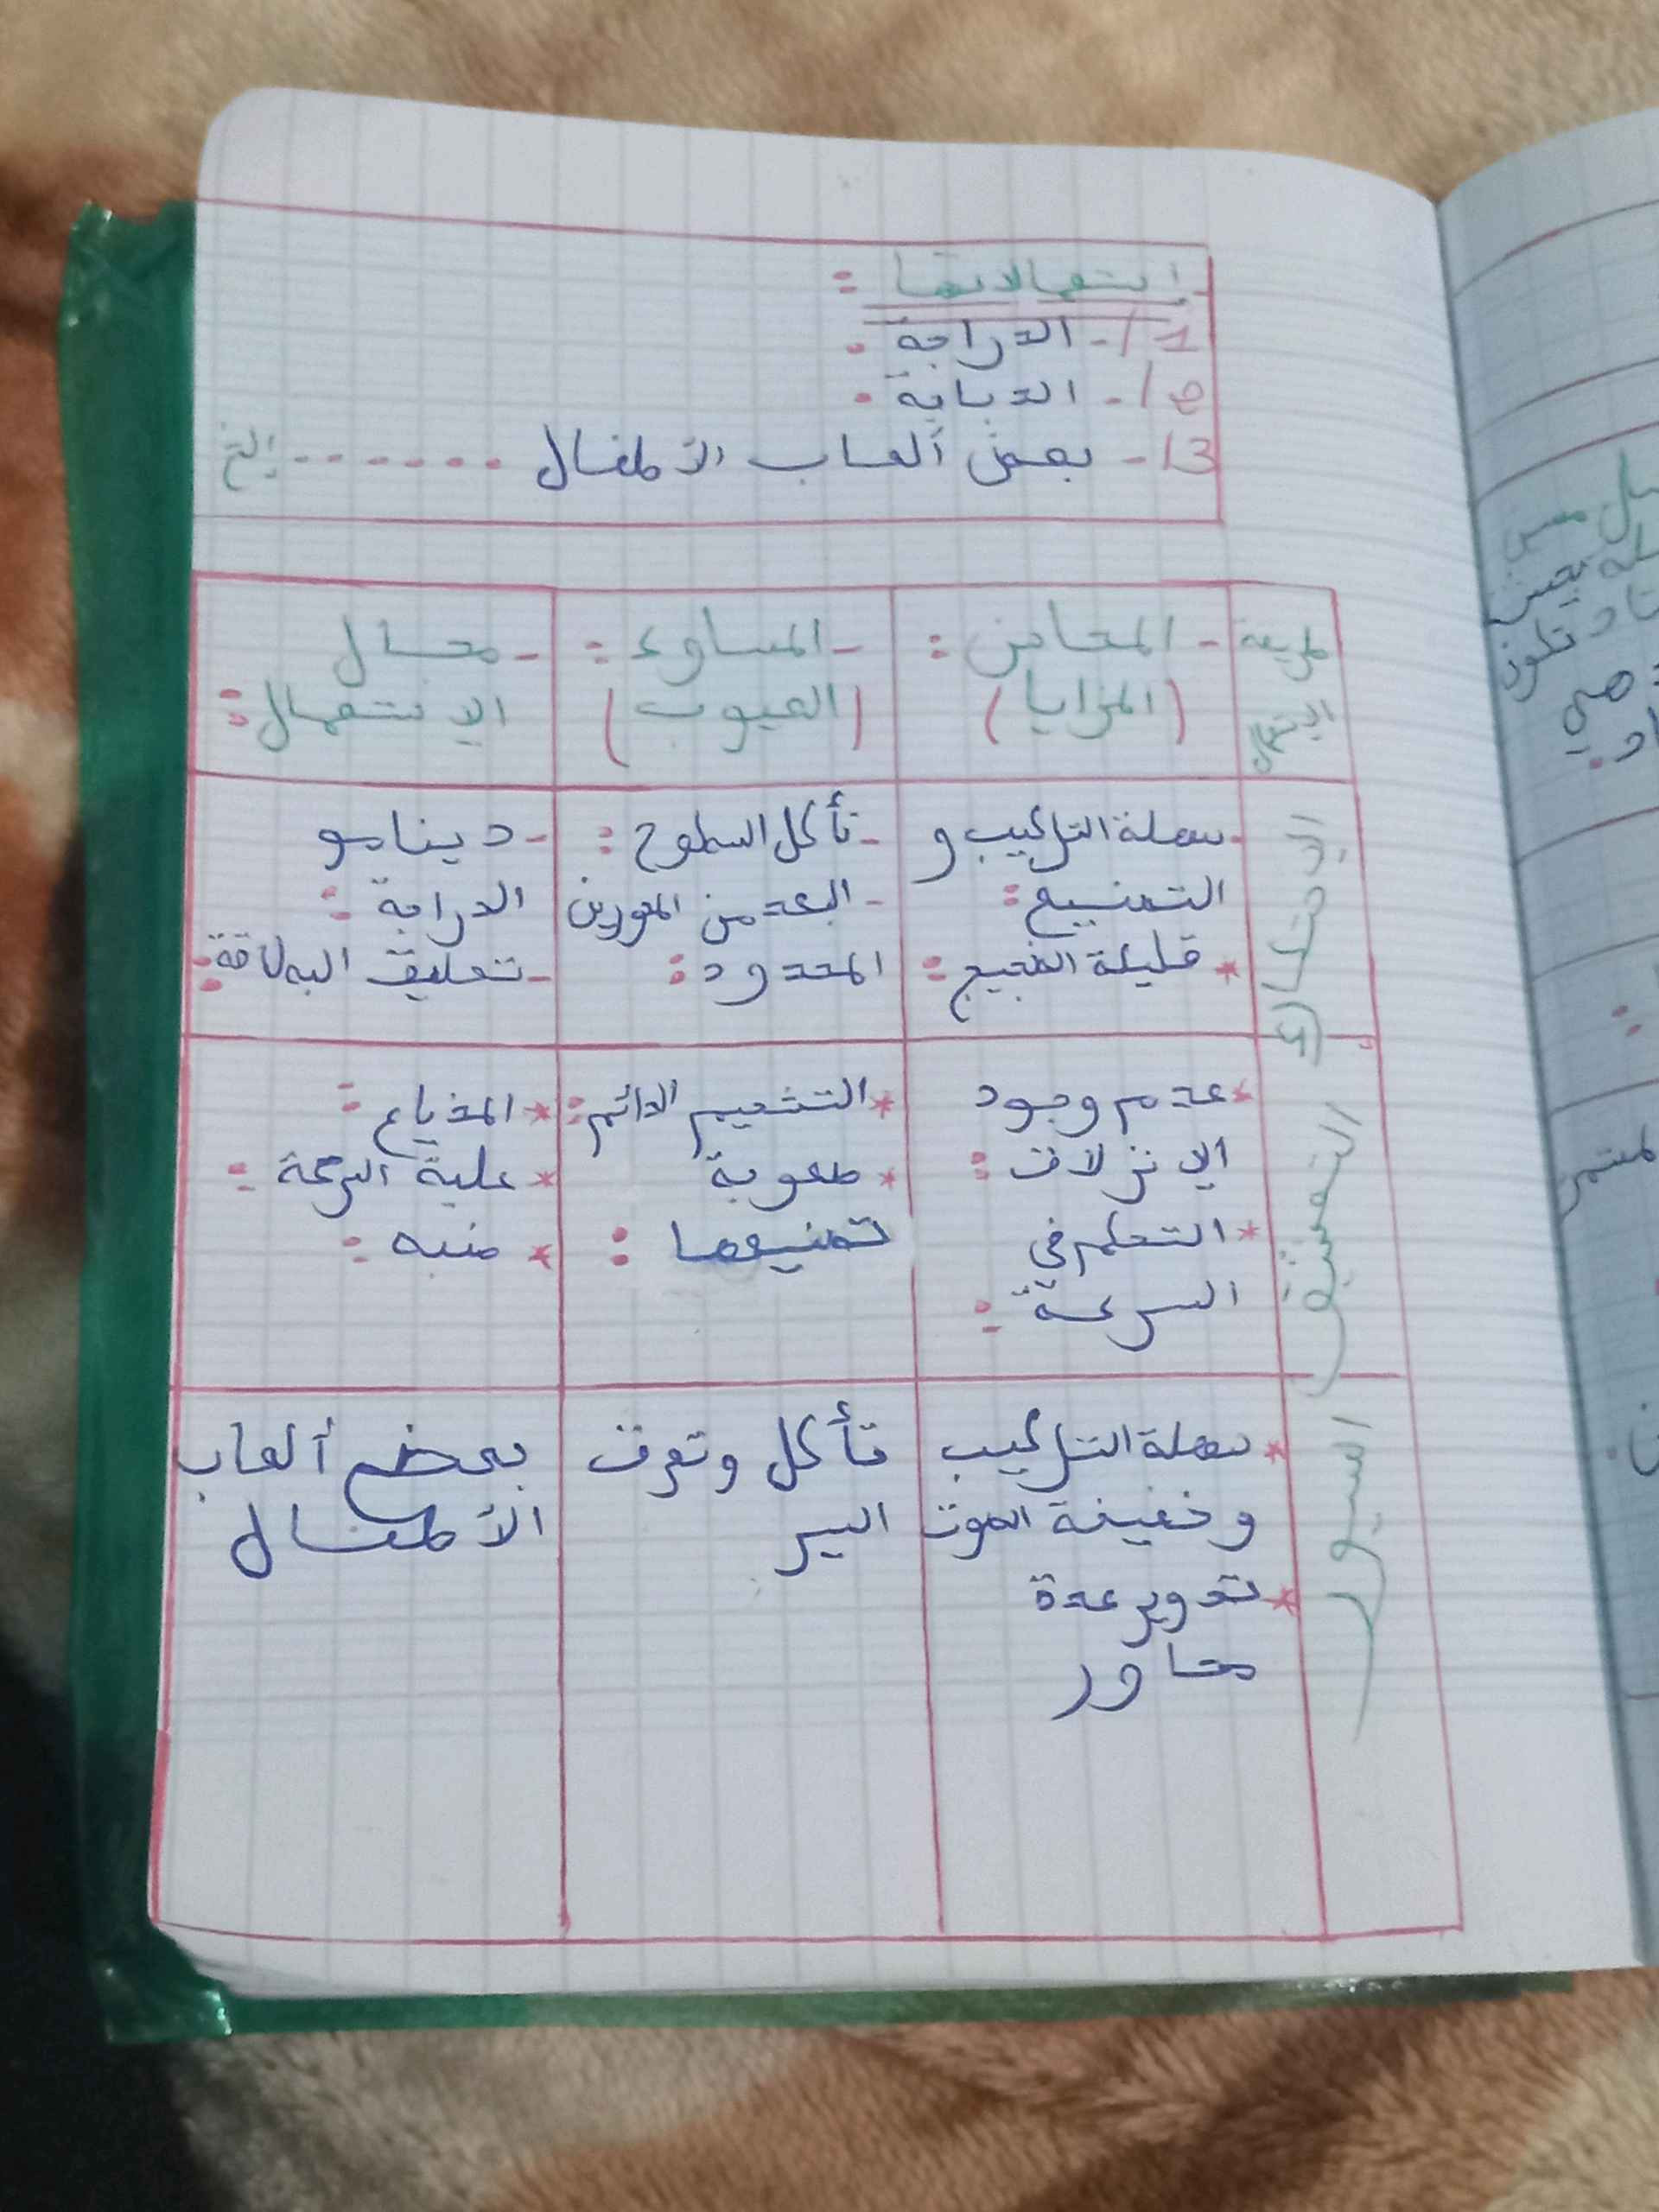 إستعمالاتها :
1/- الدراجة .
2/- الدبابة .
3/- بعض ألعاب الأطفال ...... إلخ
طريقة - المحاسن : - المساوئ : - مجال
الإستعمال (المزايا) (العيوب) الإستعمال :
الإحتكاك
- سهلة التركيب و
التصنيع :
* قليلة الضجيج :
- تأكل السطوح :
- البعد من المحورين
المحدود :
- دينامو
الدراجة :
- تعليق البطاقة :
التعشيق
* عدم وجود
الإنزلاق :
* التحكم في
السرعة :
* التشحيم الدائم :
* صعوبة
تصنيعها :
* المذياع :
* علبة السرعة :
* منبه :
السيور
* سهلة التركيب
وخفيفة الصوت
* تدوير عدة
محاور
تأكل وتمزق
السير
بعض ألعاب
الأطفال